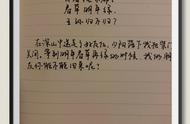 春草明年绿,
王孙归不归?
在深山中送走了好友,夕阳落下我把柴门
关闭。等到明年春草再绿的时候,我的朋
友你能不能回来呢?